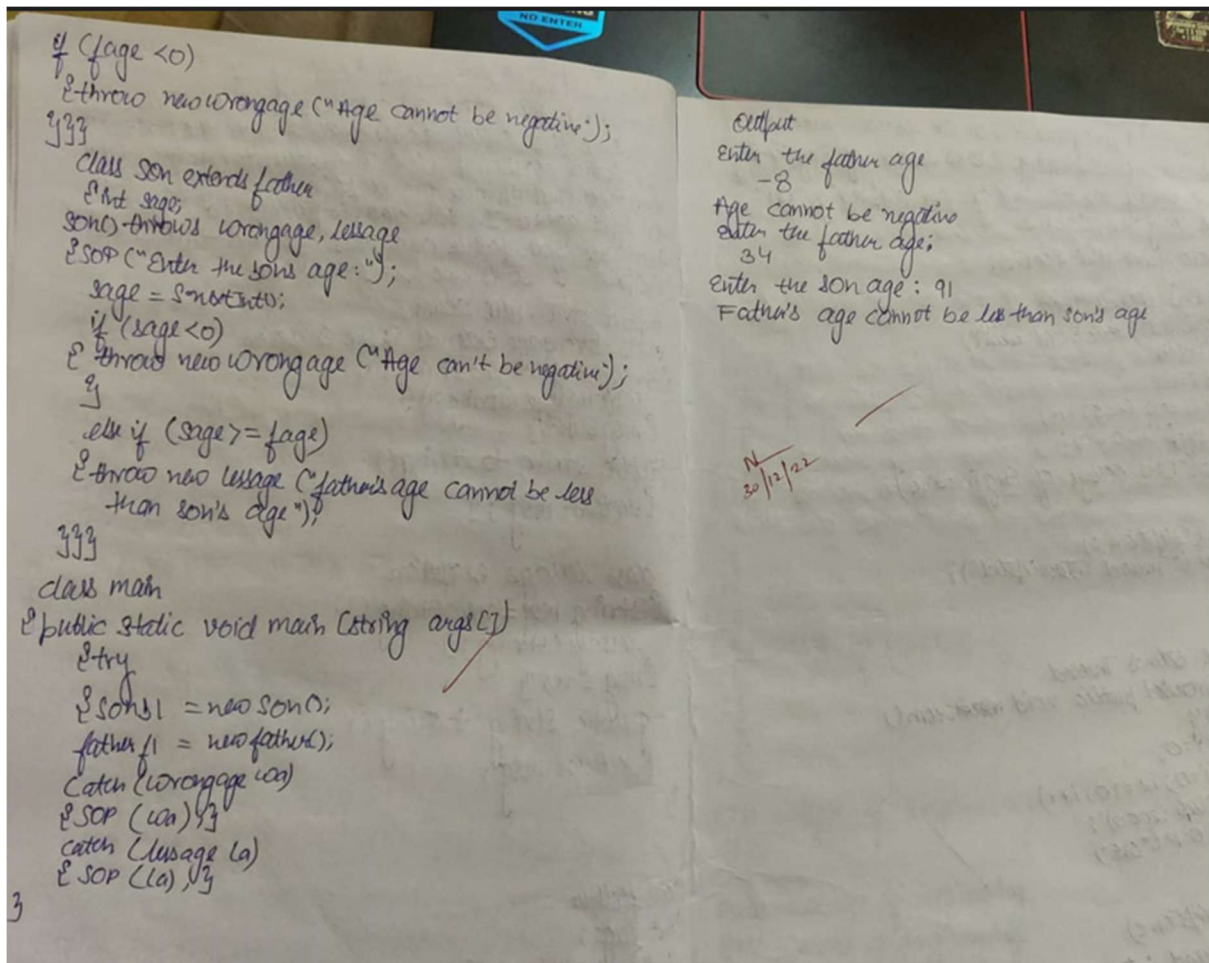 NO ENTER
if (fage <0)
{throw new wrongage ("Age cannot be negative");
}}}
class son extends father
{int sage;
son() throws wrongage, lessage
{SOP ("Enter the sons age:");
if (sage<0)
{ throw new wrongage ("Age can't be negative");
}
else if (sage>= fage)
{throw new lessage ("father's age cannot be less
than son's age");
}}}
class main
{public static void main (string args[])
{try
{son s1 = new son();
father f1 = new father();
catch (wrongage wa)
{SOP (wa);}
catch (lessage la)
{ SOP (la);}
}
Output
Enter the father age
-8
Age cannot be negative
enter the father age;
34
Enter the son age : 91
Father's age cannot be less than son's age
30/12/22